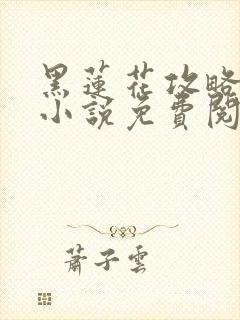 黑蓮花攻略
小說免費閱
蕭子雲